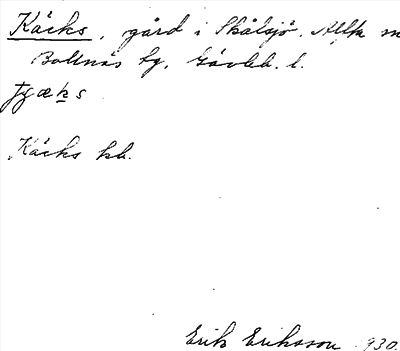 Käcks, gård i Skålsjö, Alfta
Bollnäs tg, Gävleb. l.
Käcks hb.
Erik Eriksson 1930.